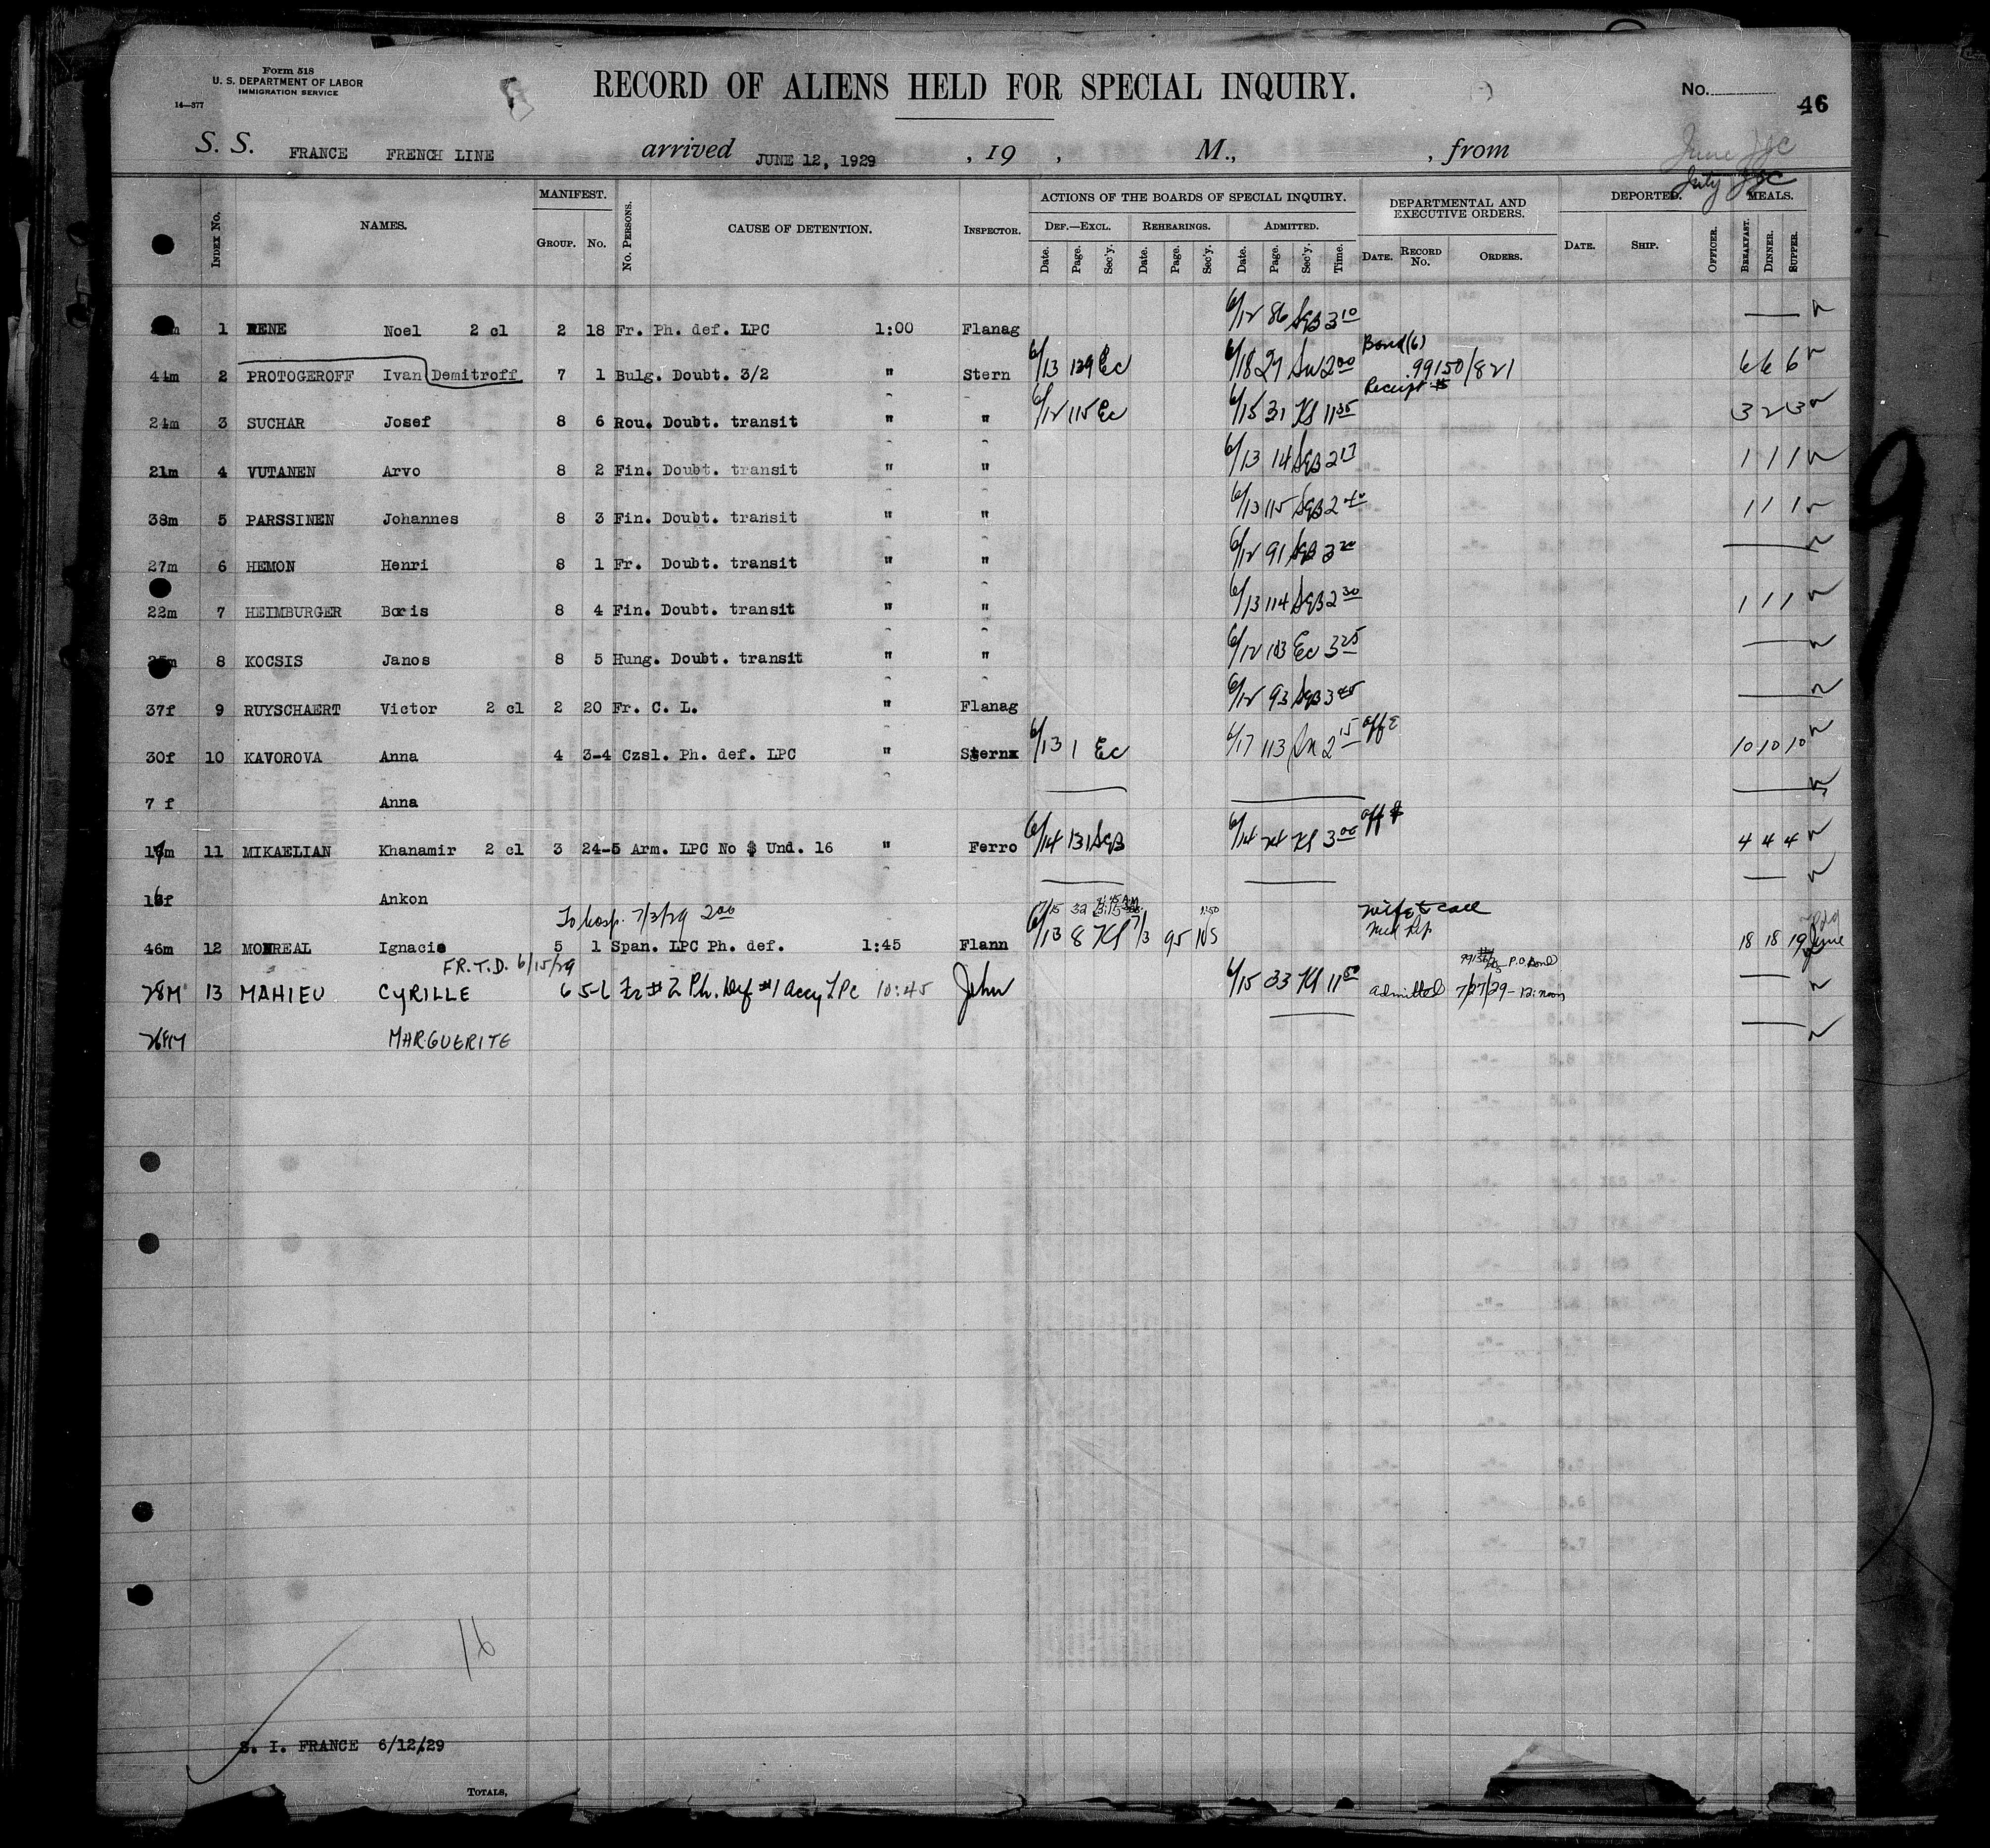 Form 518
U. S. DEPARTMENT OF LABOR
IMMIGRATION SERVICE
14—377
RECORD OF ALIENS HELD FOR SPECIAL INQUIRY.
No. 46
S. S. FRANCE FRENCH LINE arrived JUNE 12, 1929 , 19 , M., , from
June
July
Index No. NAMES. MANIFEST. Group. No. No. Persons. CAUSE OF DETENTION. Inspector. ACTIONS OF THE BOARDS OF SPECIAL INQUIRY. DEPARTMENTAL AND EXECUTIVE ORDERS. DEPORTED. MEALS.
Def.—Excl. Rehearings. Admitted.
Date. Page. Sec'y. Date. Page. Sec'y. Date. Page. Sec'y. Time. Date. Record No. Orders. Date. Ship. Officer. Breakfast. Dinner. Supper.
1 RENE Noel 2 cl 2 18 Fr. Ph. def. LPC 1:00 Flanag 6/12 86 SgB 3 10
Bond (6)
44m 2 PROTOGEROFF Ivan Demitroff 7 1 Bulg. Doubt. 3/2 " Stern 6/13 129 Ec 6/18 27 2 00 99150/821 6 6 6
Receipt
24m 3 SUCHAR Josef 8 6 Rou. Doubt. transit " " 6/12 115 Ec 6/15 31 Kl 11 35 3 2 3
21m 4 VUTANEN Arvo 8 2 Fin. Doubt. transit " " 6/13 14 SgB 2 17 1 1 1
38m 5 PARSSINEN Johannes 8 3 Fin. Doubt. transit " " 6/13 115 SgB 2 40 1 1 1
27m 6 HEMON Henri 8 1 Fr. Doubt. transit " " 6/12 91 SgB 3 20
22m 7 HEIMBURGER Boris 8 4 Fin. Doubt. transit " " 6/13 114 SgB 2 30 1 1 1
8 KOCSIS Janos 8 5 Hung. Doubt. transit " " 6/12 103 Ec 3 25
37f 9 RUYSCHAERT Victor 2 cl 2 20 Fr. C. L. " Flanag 6/12 93 SgB 3 45
30f 10 KAVOROVA Anna 4 3-4 Czsl. Ph. def. LPC " Sternx 6/13 1 Ec 6/17 113 2 15 10 10 10
7 f Anna
11 MIKAELIAN Khanamir 2 cl 3 24-5 Arm. LPC No $ Und. 16 " Ferro 6/14 131 SgB 6/14 24 Kl 3 00 4 4 4
Ankon
To hosp. 7/3/29 2 00
46m 12 MONREAL Ignacio 5 1 Span. LPC Ph. def. 1:45 Flann 6/13 8 Kl 7/3 95 NS 18 18 19
FR. T.D. 6/15/29
P.O. Bond
28M 13 MAHIEU CYRILLE 6 5-6 Fr #2 Ph. Def #1 Accy LPC 10:45 John 6/15 33 Kl 11 50 admitted 7/27/29 - 12: noon
MARGUERITE
16
S. I. FRANCE 6/12/29
Totals,